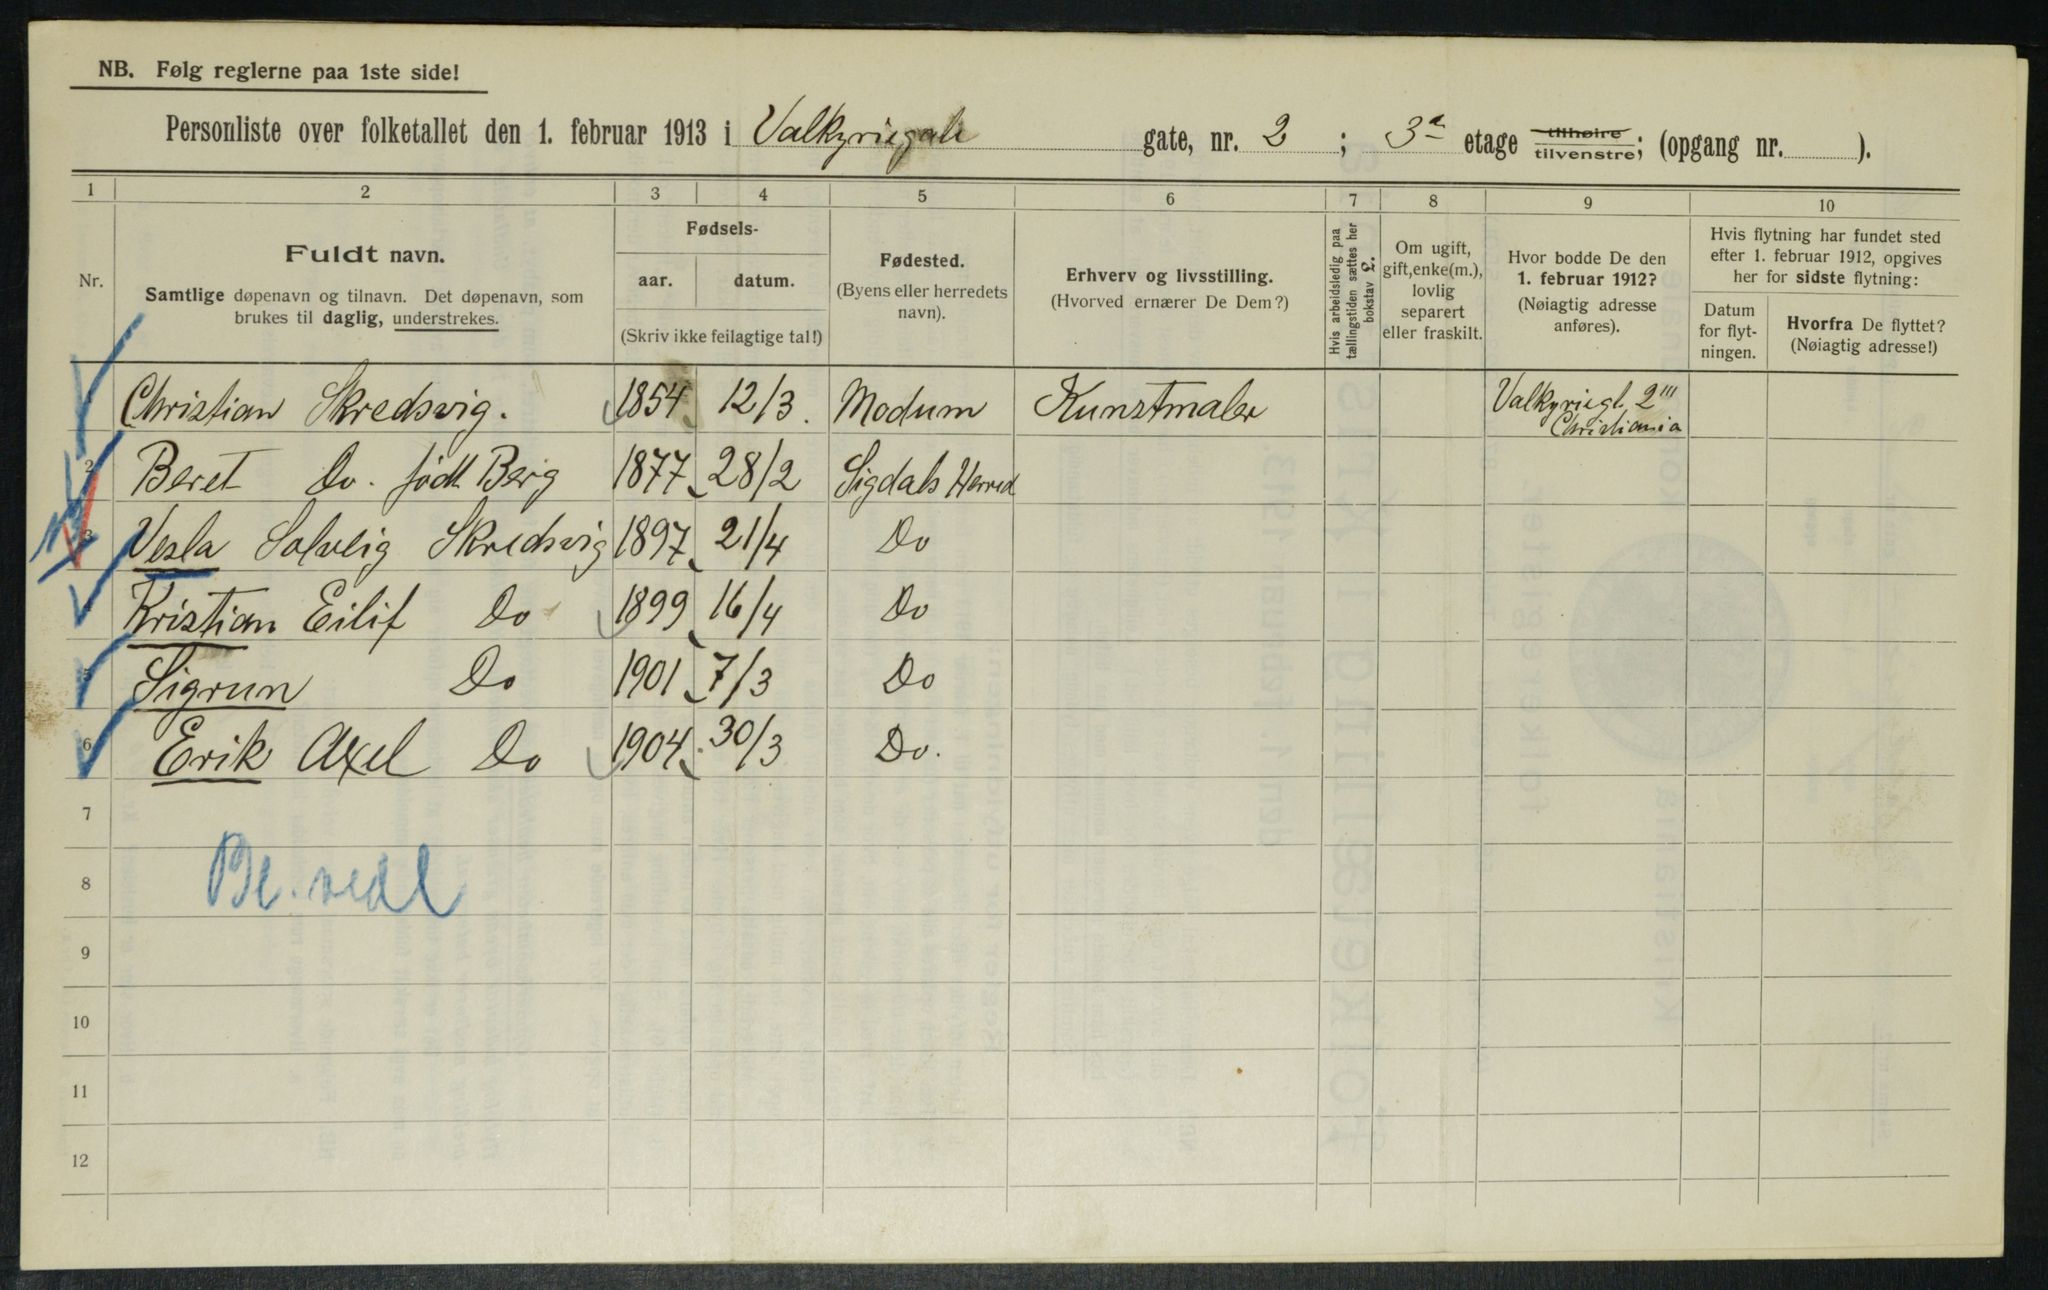 NB. Følg reglerne paa 1ste side!
Personliste over folketallet den 1. februar 1913 i Valkyriegate gate, nr. 2 ; 3die etage tilhøire tilvenstre; (opgang nr. ).
1 2 3 4 5 6 7 8 9 10
Nr.
Fuldt navn.
Samtlige døpenavn og tilnavn. Det døpenavn, som
brukes til daglig, understrekes.
Fødsels-
aar. datum.
(Skriv ikke feilagtige tal!)
Fødested.
(Byens eller herredets
navn).
Erhverv og livsstilling.
(Hvorved ernærer De Dem?)
Hvis arbeidsledig paa
tællingstiden sættes her
bokstav £.
Om ugift,
gift, enke(m.),
lovlig
separert
eller fraskilt.
Hvor bodde De den
1. februar 1912?
(Nøiagtig adresse
anføres).
Hvis flytning har fundet sted
efter 1. februar 1912, opgives
her for sidste flytning:
Datum
for flyt-
ningen.
Hvorfra De flyttet?
(Nøiagtig adresse!)
Christian Skredsvig. 1854 12/3. Modum Kunstmaler Valkyriegt. 2III
Christiania
2 Beret Do. født Berg 1877 28/2 Sigdals Herred
3 Vesla Solveig Skredsvig 1897 21/4 Do
4 Kristian Eilif Do 1899 16/4 Do
5 Sigrun Do 1901 7/3 Do
6 Erik Axel Do 1904 30/3 Do.
7
8 Bl. vedl
9
10
11
12